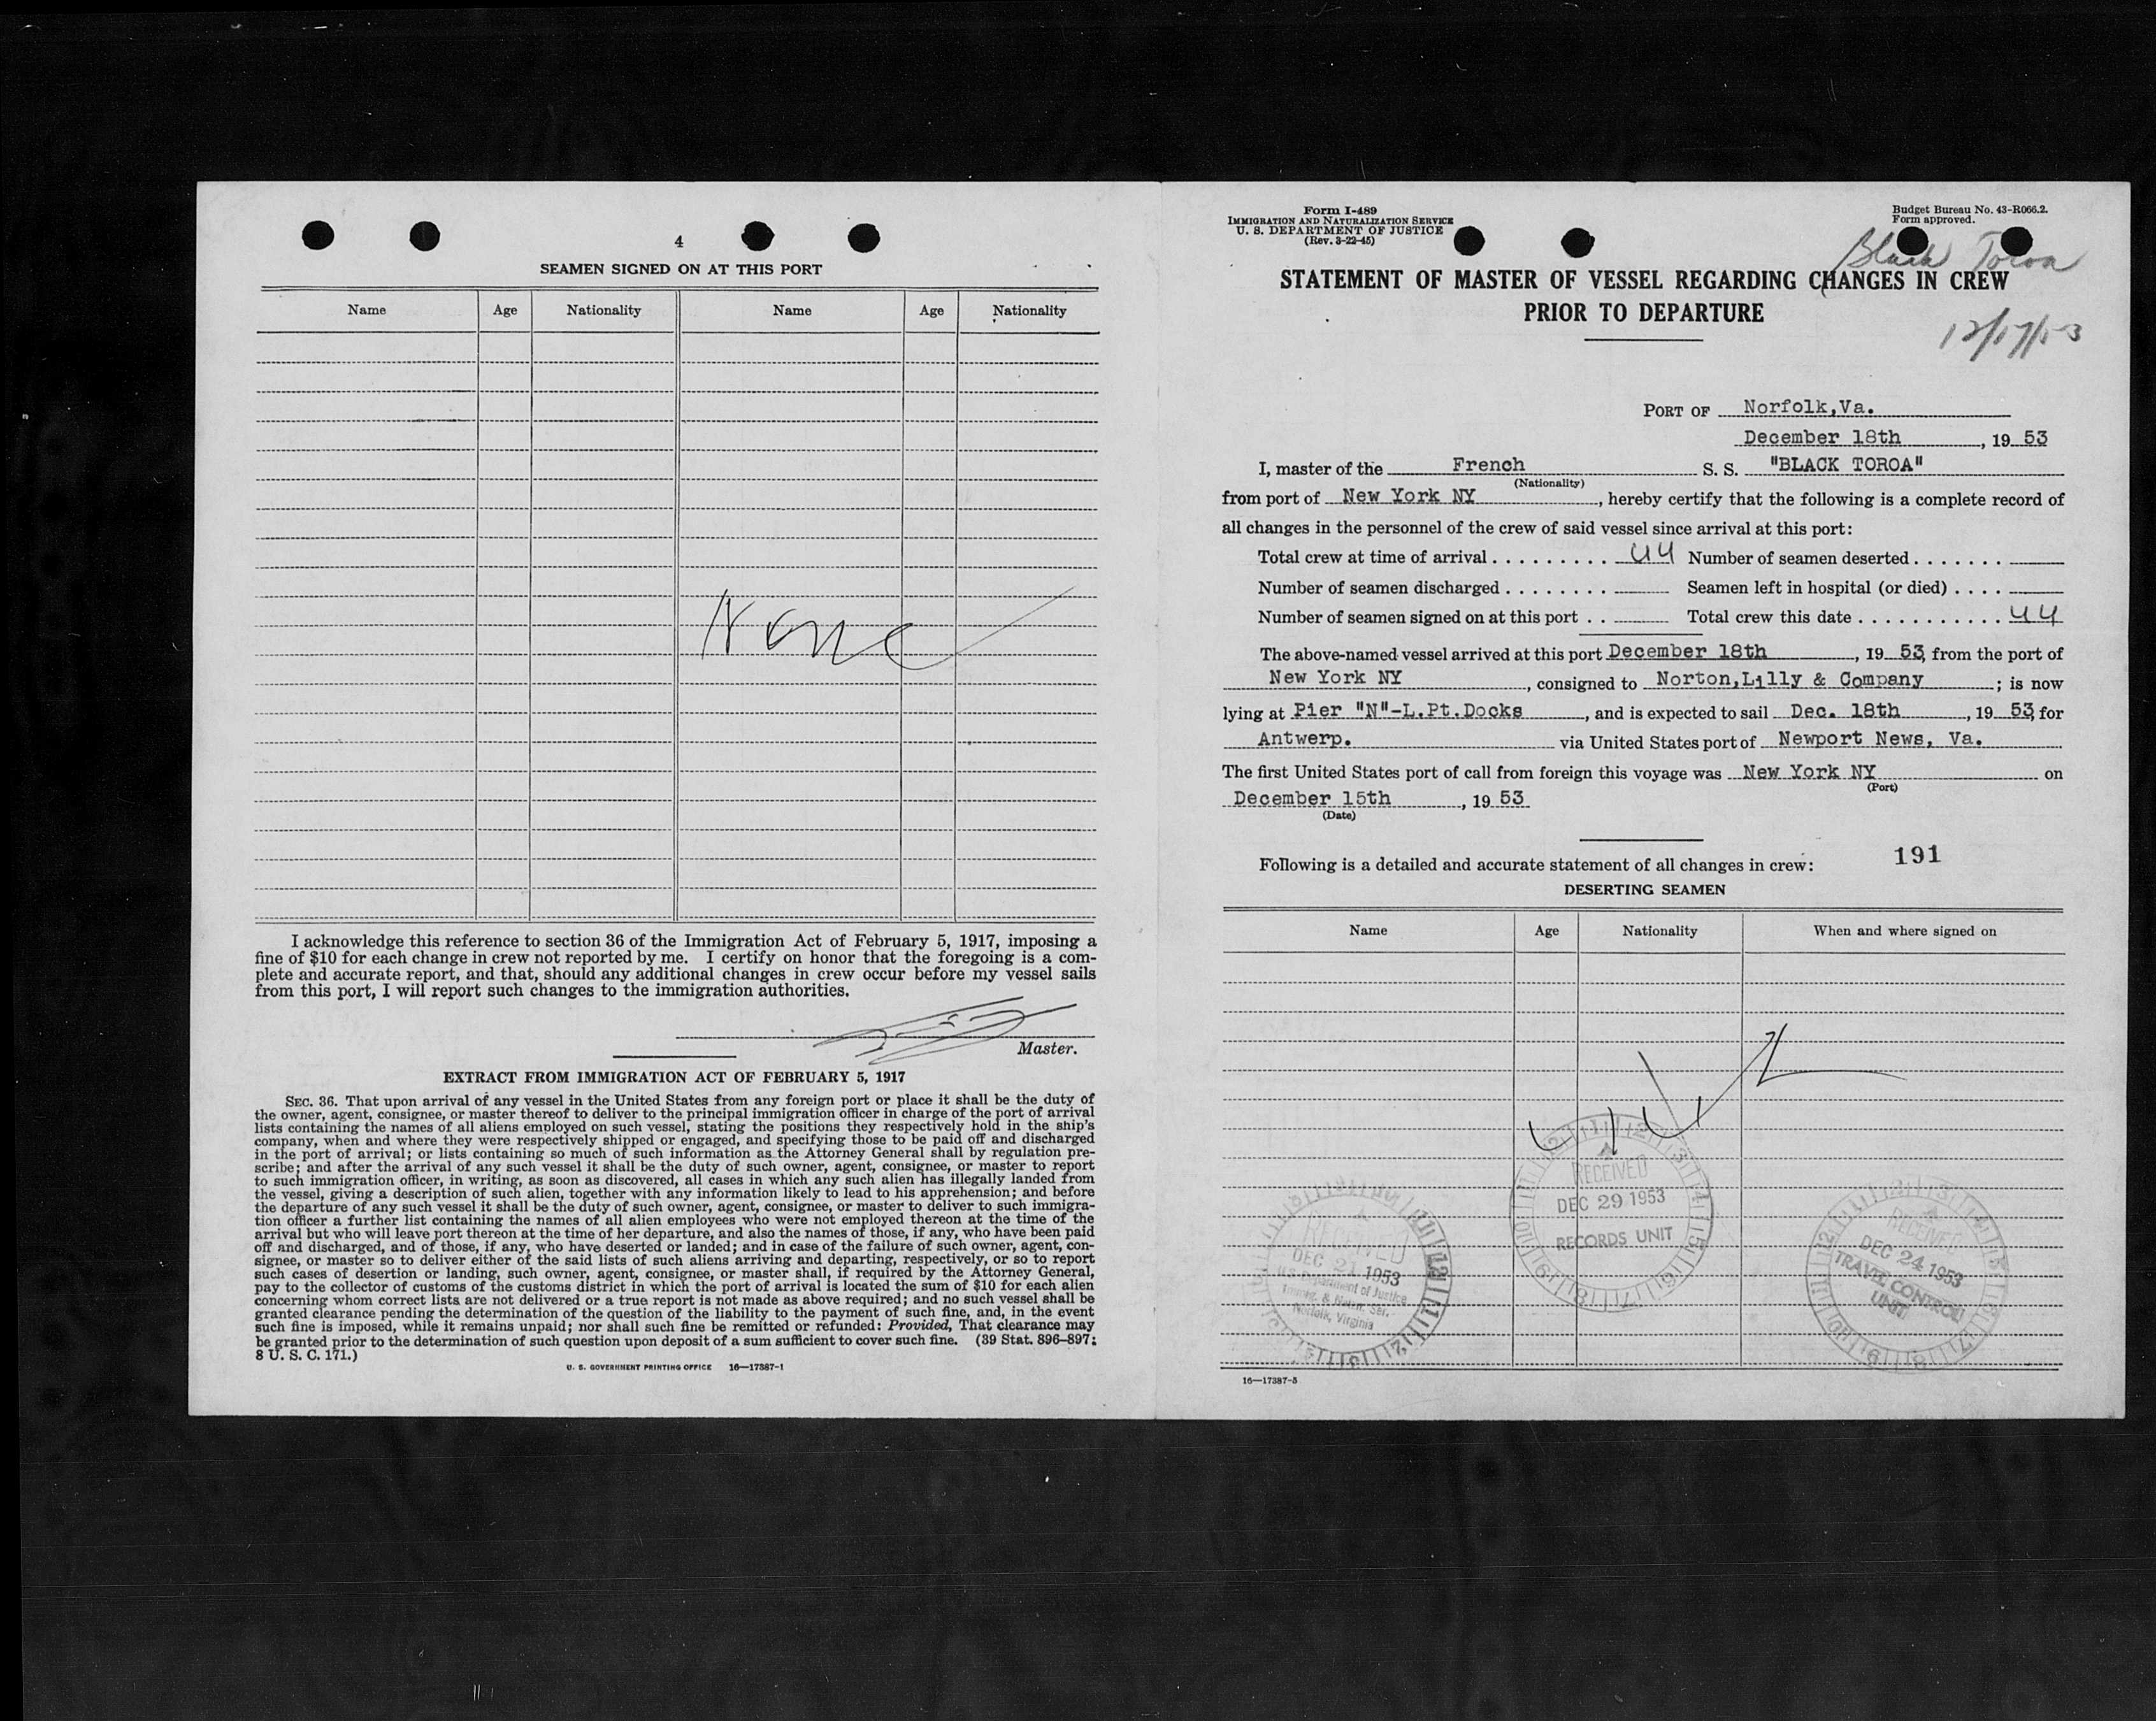 4
SEAMEN SIGNED ON AT THIS PORT
Name Age Nationality Name Age Nationality
None
I acknowledge this reference to section 36 of the Immigration Act of February 5, 1917, imposing a
fine of $10 for each change in crew not reported by me. I certify on honor that the foregoing is a com-
plete and accurate report, and that, should any additional changes in crew occur before my vessel sails
from this port, I will report such changes to the immigration authorities.
Master.
EXTRACT FROM IMMIGRATION ACT OF FEBRUARY 5, 1917
SEC. 36. That upon arrival of any vessel in the United States from any foreign port or place it shall be the duty of
the owner, agent, consignee, or master thereof to deliver to the principal immigration officer in charge of the port of arrival
lists containing the names of all aliens employed on such vessel, stating the positions they respectively hold in the ship's
company, when and where they were respectively shipped or engaged, and specifying those to be paid off and discharged
in the port of arrival; or lists containing so much of such information as the Attorney General shall by regulation pre-
scribe; and after the arrival of any such vessel it shall be the duty of such owner, agent, consignee, or master to report
to such immigration officer, in writing, as soon as discovered, all cases in which any such alien has illegally landed from
the vessel, giving a description of such alien, together with any information likely to lead to his apprehension; and before
the departure of any such vessel it shall be the duty of such owner, agent, consignee, or master to deliver to such immigra-
tion officer a further list containing the names of all alien employees who were not employed thereon at the time of the
arrival but who will leave port thereon at the time of her departure, and also the names of those, if any, who have been paid
off and discharged, and of those, if any, who have deserted or landed; and in case of the failure of such owner, agent, con-
signee, or master so to deliver either of the said lists of such aliens arriving and departing, respectively, or so to report
such cases of desertion or landing, such owner, agent, consignee, or master shall, if required by the Attorney General,
pay to the collector of customs of the customs district in which the port of arrival is located the sum of $10 for each alien
concerning whom correct lists are not delivered or a true report is not made as above required; and no such vessel shall be
granted clearance pending the determination of the question of the liability to the payment of such fine, and, in the event
such fine is imposed, while it remains unpaid; nor shall such fine be remitted or refunded: Provided, That clearance may
be granted prior to the determination of such question upon deposit of a sum sufficient to cover such fine. (39 Stat. 896-897;
8 U. S. C. 171.)
U. S. GOVERNMENT PRINTING OFFICE 16—17387-1
Form I-489
IMMIGRATION AND NATURALIZATION SERVICE
U. S. DEPARTMENT OF JUSTICE
(Rev. 3-22-45)
Budget Bureau No. 43-R066.2.
Form approved.
Black Toroa
STATEMENT OF MASTER OF VESSEL REGARDING CHANGES IN CREW
PRIOR TO DEPARTURE
12/17/53
PORT OF Norfolk,Va.
December 18th, 19 53
I, master of the French S. S. "BLACK TOROA"
(Nationality)
from port of New York NY, hereby certify that the following is a complete record of
all changes in the personnel of the crew of said vessel since arrival at this port:
Total crew at time of arrival . . . . . . . . . 44 Number of seamen deserted . . . . . . .
Number of seamen discharged . . . . . . . . Seamen left in hospital (or died) . . . .
Number of seamen signed on at this port . . Total crew this date . . . . . . . . . . . 44
The above-named vessel arrived at this port December 18th, 19 53, from the port of
New York NY, consigned to Norton,Lilly & Company; is now
lying at Pier "N"-L.Pt.Docks, and is expected to sail Dec. 18th, 19 53, for
Antwerp. via United States port of Newport News, Va.
The first United States port of call from foreign this voyage was New York NY on
(Port)
December 15th, 19 53
(Date)
191
Following is a detailed and accurate statement of all changes in crew:
DESERTING SEAMEN
Name Age Nationality When and where signed on
RECEIVED
DEC 29 1953
RECORDS UNIT
RECEIVED
DEC 21 1953
U.S. Department of Justice
Immig. & Natzn. Ser.
Norfolk, Virginia
RECEIVED
DEC 24 1953
TRAVEL CONTROL
UNIT
16—17387-3